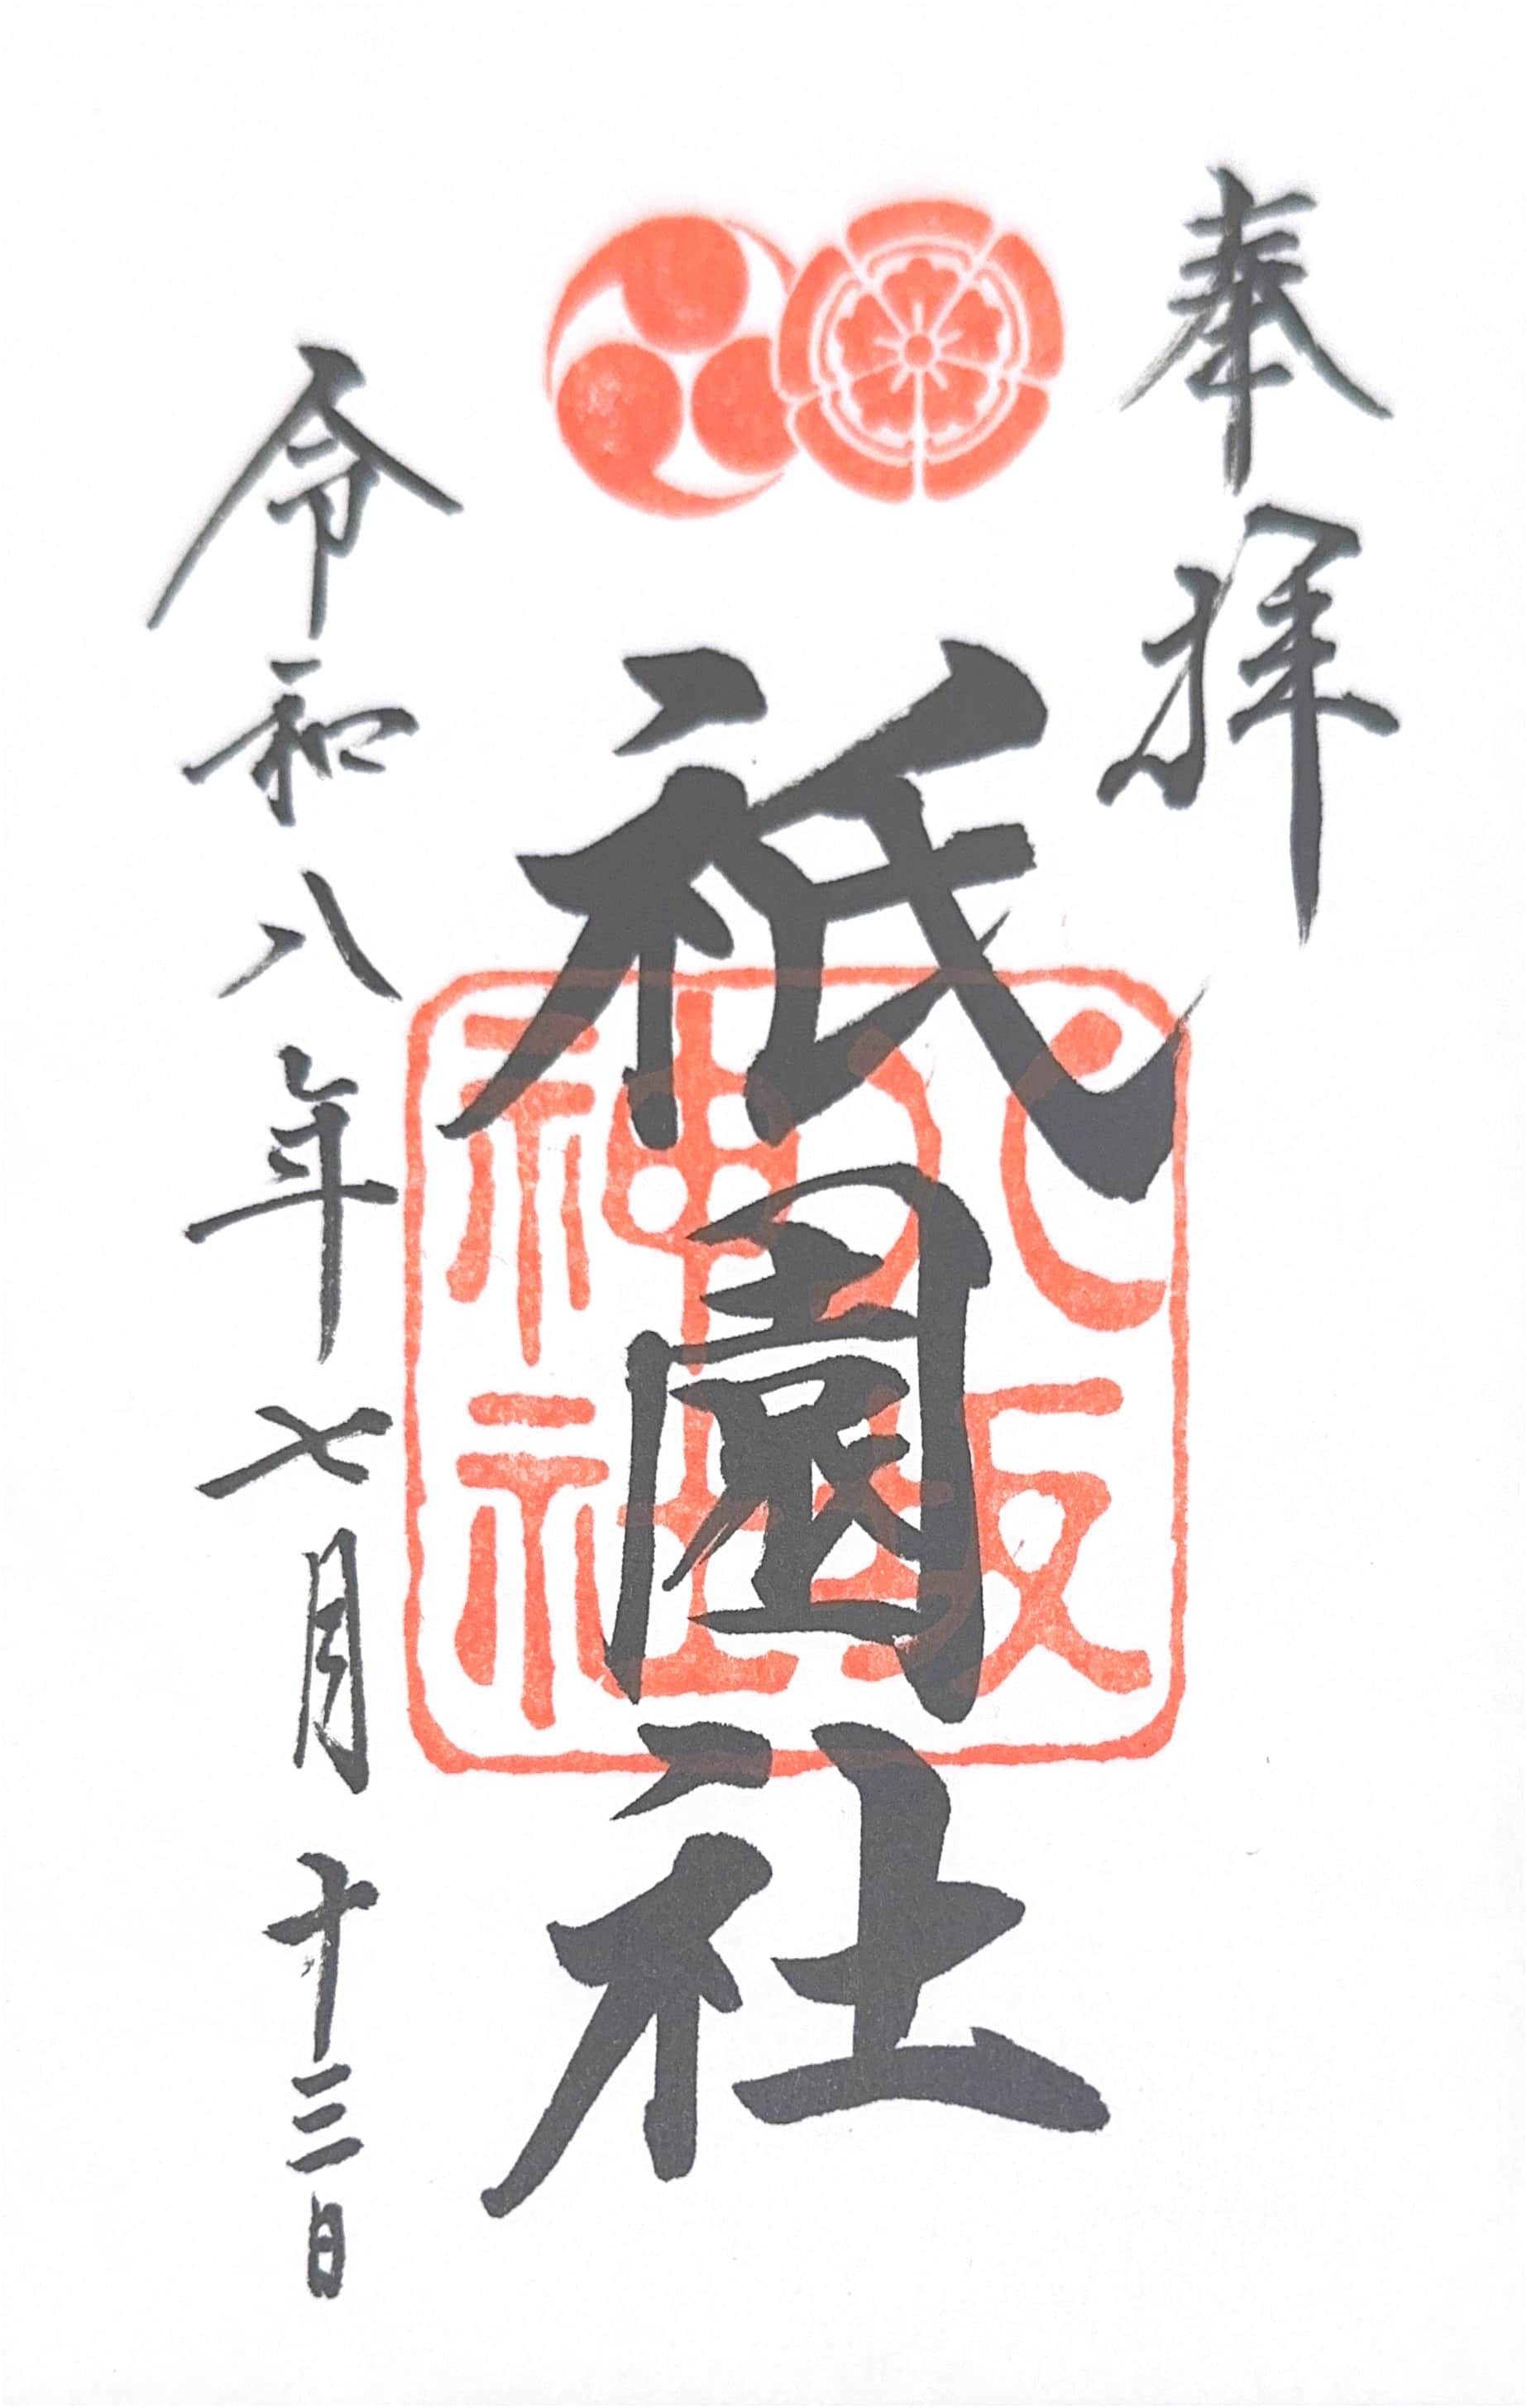 奉拝
祇園社
八坂神社
令和八年七月十三日